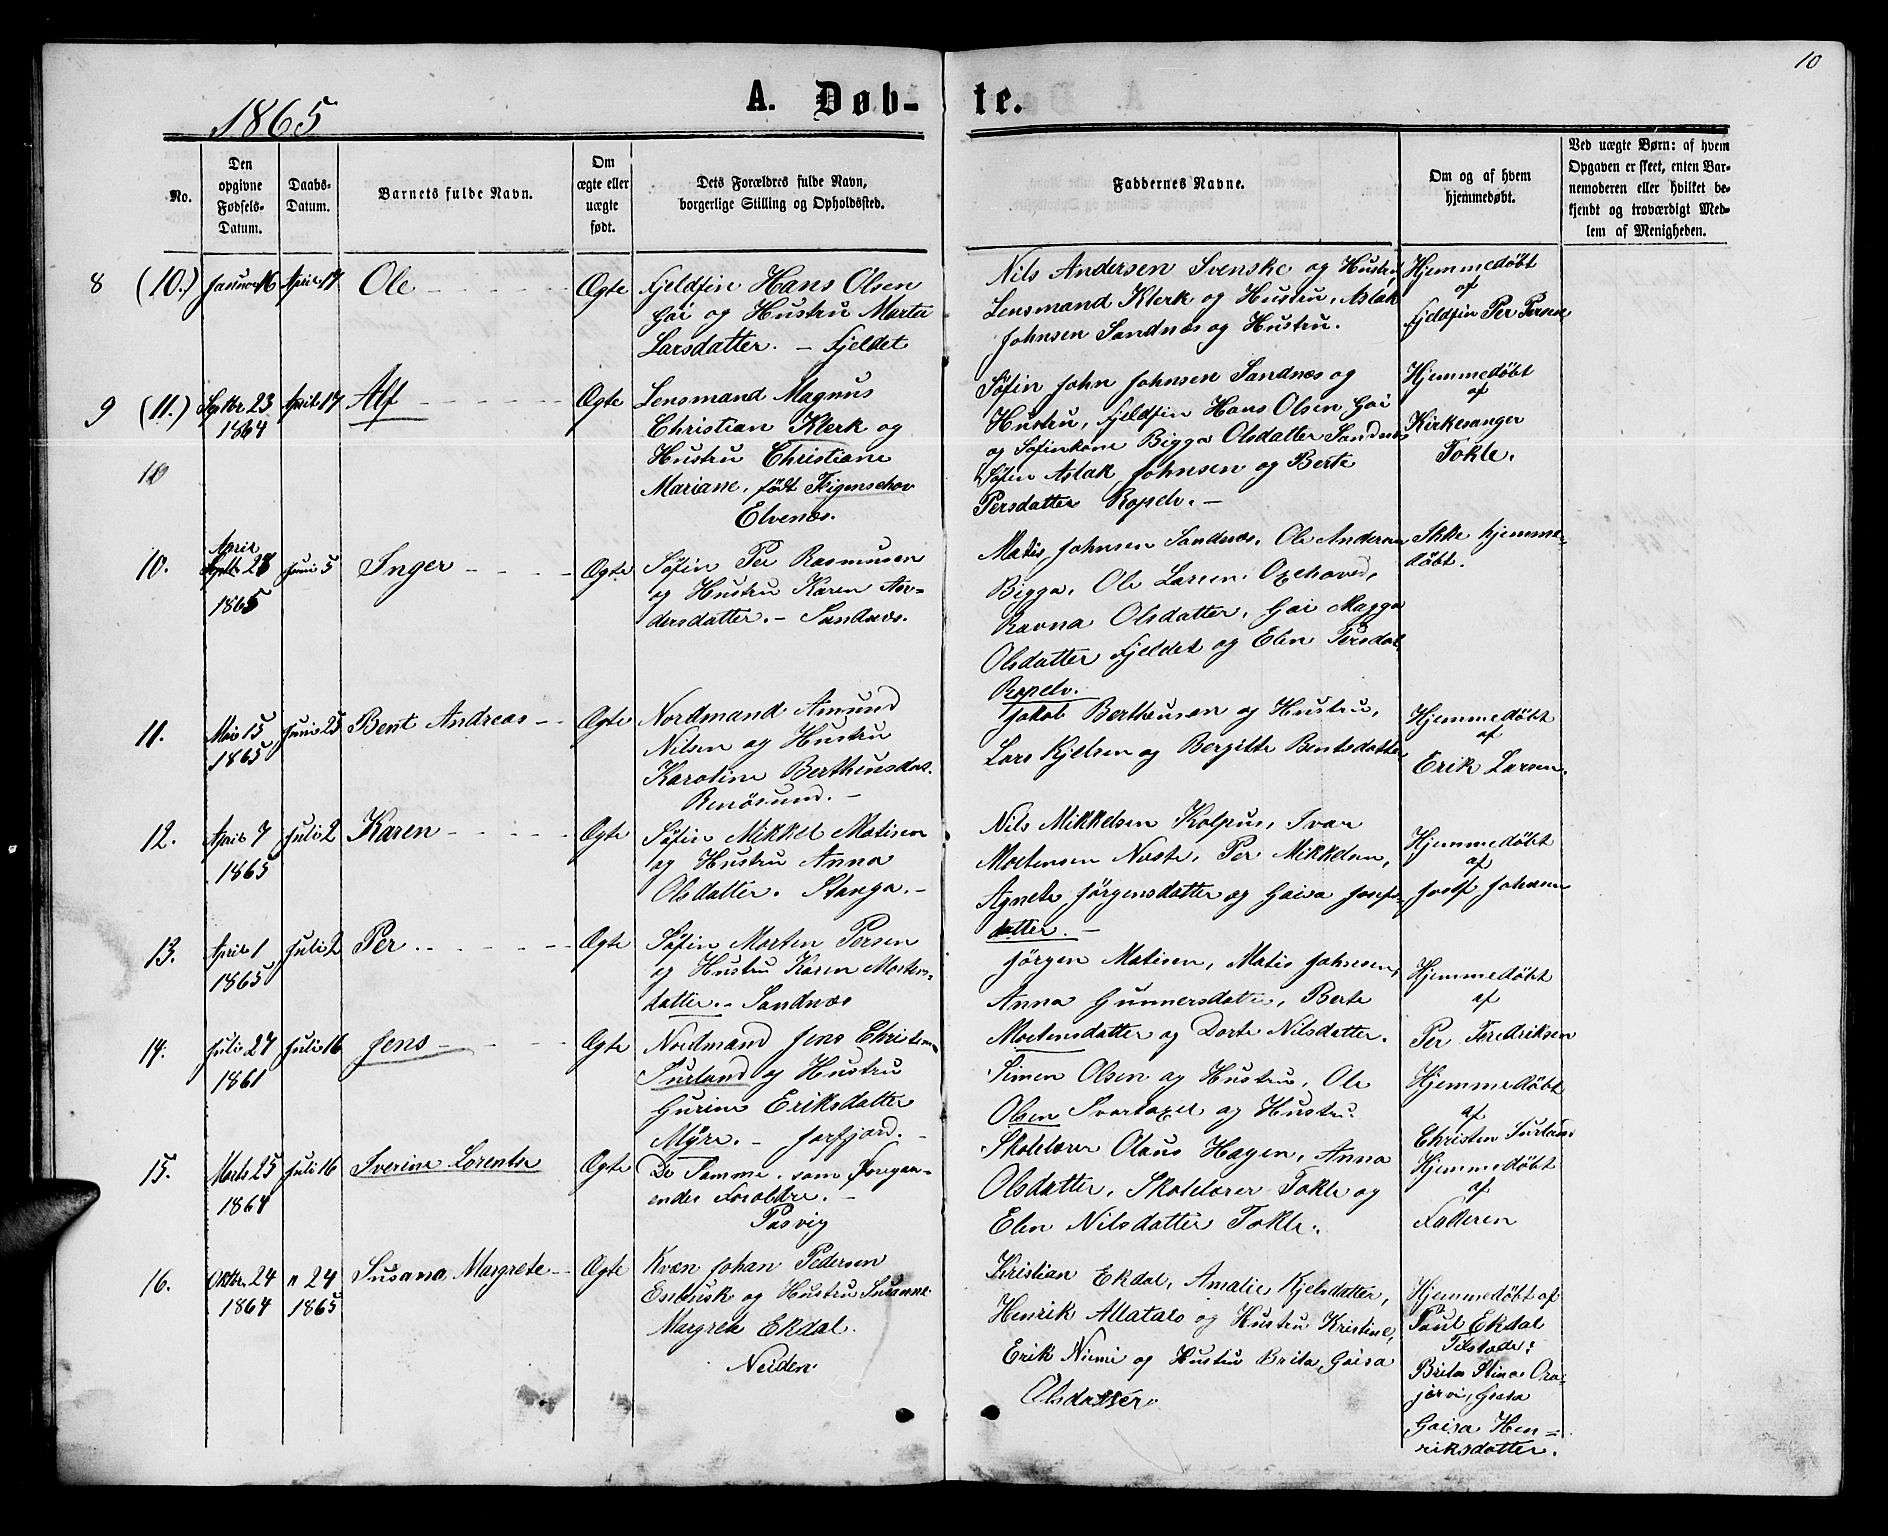 10
1865
A. Døb-
te.
No.
Den opgivne Fødsels-Datum.
Daabs-Datum.
Barnets fulde Navn.
Om ægte eller uægte født.
Dets Forældres fulde Navn, borgerlige Stilling og Opholdssted.
Faddernes Navne.
Om og af hvem hjemmedøbt.
Ved uægte Børn: af hvem Opgaven er skeet, enten Barnemoderen eller hvilket bekjendt og troværdigt Medlem af Menigheden.
8 (10.) Januar 16 April 17 Ole Ægte
Fjeldfin Hans Olsen
Gai og Hustru Marta
Larsdatter. - Fjeldet
Nils Andersen Svenske og Hustru,
Lensmand Klerk og Hustru, Aslak
Johnsen Sandnæs og Hustru.
Hjemmedøbt
af
Fjeldfin Per Persen
9 (11.) Septbr 23 1864 April 17 Alf Ægte
Lensmand Magnus
Christian Klerk og
Hustru Christiane
Mariane, født Figenschov
Elvenæs.
Søfin John Johnsen Sandnæs og
Hustru, Fjeldfin Hans Olsen Gai
og Søfinkone Bigga Olsdatter Sandnæs
Søfin Aslak Johnsen og Berte
Persdatter Ropelv. -
Hjemmedøbt
af
Kirkesanger
Tokle.
10
10. April 28 1865 Juni 5 Inger Ægte
Søfin Per Rasmusen
og Hustru Karen An-
dersdatter. - Sandnæs.
Matis Johnsen Sandnæs, Ole Andersen
Bigga, Ole Larsen Oxehoved,
Ravna Olsdatter, Gai Magga
Olsdatter Fjeldet og Elen Persdat
Ropelv.
Ikke hjemme-
døbt.
11. Mai 15 1865 Juni 25 Bent Andreas Ægte
Nordmand Amund
Nilsen og Hustru
Karoline Bertheusdat.
Renøsund. -
Jakob Bertheusen og Hustru,
Lars Kjelsen og Bergitte Bentsdatter
Hjemmedøbt
af
Erik Larsen.
12. April 7 1865 Juli 2 Karen Ægte
Søfin Mikkel Matisen
og Hustru Anna
Olsdatter. Stanga. -
Nils Mikkelsen Kolpus, Ivar
Mortensen Næste, Per Mikkelsen,
Agnete Jørgensdatter og Gaisa Josefs-
datter. -
Hjemmedøbt
af
Josef Johnsen
13. April 1 1865 Juli 2 Per Ægte
Søfin Morten Persen
og Hustru Karen Mortens-
datter. - Sandnæs
Jørgen Matisen, Matis Johnsen,
Anna Gunnersdatter, Berte
Mortensdatter og Dorte Nilsdatter.
Hjemmedøbt
af
Per Fredriksen
14. Juli 27 1861 Juli 16 Jens Ægte
Nordmand Jens Christen
Surland og Hustru
Gurine Eriksdatter
Myre. - Jarfjord. -
Simen Olsen og Hustru, Ole
Olsen Svartaxel og Hustru.
Hjemmedøbt
af
Christen Surland
15. Marts 25 1864 Juli 16 Iverine Lorentse Ægte
De Samme, som Foregaa-
ender Forældre. -
Pasvig
Skolelærer Olaus Hagen, Anna
Olsdatter, Skolelærer Tokle og
Elen Nilsdatter Tokle.
Hjemmedøbt
af
Faderen
16. Oktbr. 24 1864 " 24 1865 Susana Margrete Ægte
Kvæn Johan Pedersen
Esebusk og Hustru Susanna
Margrete Ekdal.
Neiden.
Kristian Ekdal, Amalie Kjelsdatter,
Henrik Allatalo og Hustru Kristine,
Erik Niemi og Hustru Brita, Gaisa
Olsdatter.
Hjemmedøbt af
Paul Ekdal
Tilstede:
Brita Stina Ora-
jarvi, Greta
Gaisa Hen-
riksdatter.